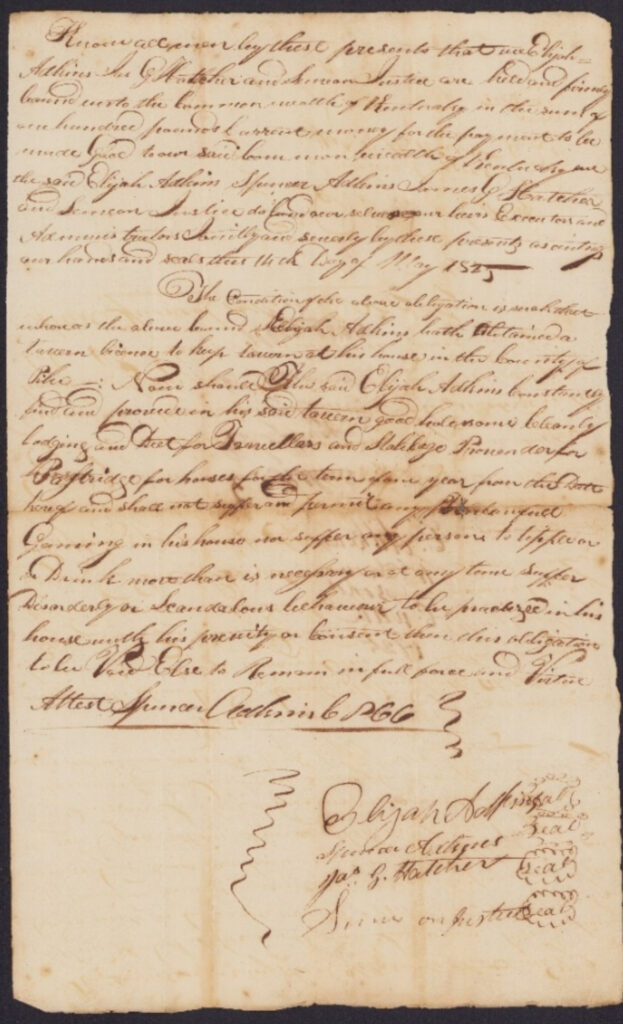 Know all men by these presents that we Elijah
Adkins Jas G Hatcher and Simeon Justice are held and firmly
bound unto the Common wealth of Kentucky in the sum of
one hundred pounds Current money for the payment to be
made Good to our said Common wealth of Kentucky we
the said Elijah Adkins Spencer Adkins James G Hatcher
and Simeon Justice do bind our selves our heirs Executors and
Administrators Jointly and severly by these presents as witness
our hands and seals this 14th day of May 1825
The Condition of the above obligation is such that
whereas the above bound Elijah Adkins hath Obtained a
tavern licence to keep tavern at his house in the County of
Pike Now should The said Elijah Adkins Constantly
find and provide in his said tavern good holesome Cleanly
lodging and Diet for Travellers and Stablage Provender or
Pastridge for horses for the term of one year from the Date
hereof and shall not suffer and permit any
Gaming in his house nor suffer any person to tipple or
Drink more than is necessary or at any time suffer
Disorderly or Scandalous behaviour to be practized in his
house with his privity or Consent then this obligation
to be Void Else to Remain in full force and Virtue
Attest Spencer Adkins
Elijah Adkins Seal
Spencer Adkins Seal
Jas G. Hatcher Seal
Simeon Justice Seal